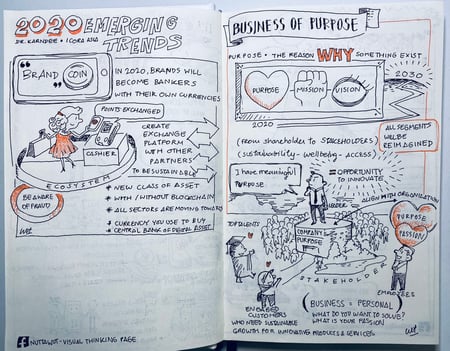 2020 EMERGING
TRENDS
DR. KARNDEE •
"BRAND COIN"
IN 2020, BRANDS WILL
BECOME BANKERS
WITH THEIR OWN CURRENCIES
POINTS EXCHANGED
CASHIER
ECOSYSTEM
CREATE
EXCHANGE
PLATFORM
WITH OTHER
PARTNERS
TO BE SUSTAINABLE
BEWARE
OF FRAUD
* NEW CLASS OF ASSET
* WITH / WITHOUT BLOCKCHAIN
* ALL SECTORS ARE MOVING TOWARDS
* CURRENCY YOU USE TO BUY
* CENTRAL BANK OF DIGITAL ASSET
NUTTAWUT-VISUAL THINKING PAGE
BUSINESS OF PURPOSE
PURPOSE • THE REASON WHY SOMETHING EXIST
2030
PURPOSE MISSION VISION
2020
ALL SEGMENTS
WILL BE
REIMAGINED
(from shareholder to STAKEHOLDERS)
(sustainability - wellbeing - ACCESS)
I have meaningful
PURPOSE
= OPPORTUNITY
TO INNOVATE
LEADER
ALIGN WITH ORGANIZATION
PURPOSE
PASSION
TOP TALENTS
COMPANY
PURPOSE
STAKEHOLDER
EMPLOYEES
ENGAGED
CUSTOMERS
WHO NEED SUSTAINABLE
GROWTH FOR INNOVATIVE PRODUCTS & SERVICES
(BUSINESS = PERSONAL)
WHAT DO YOU WANT TO SOLVE?
WHAT IS YOUR PASSION